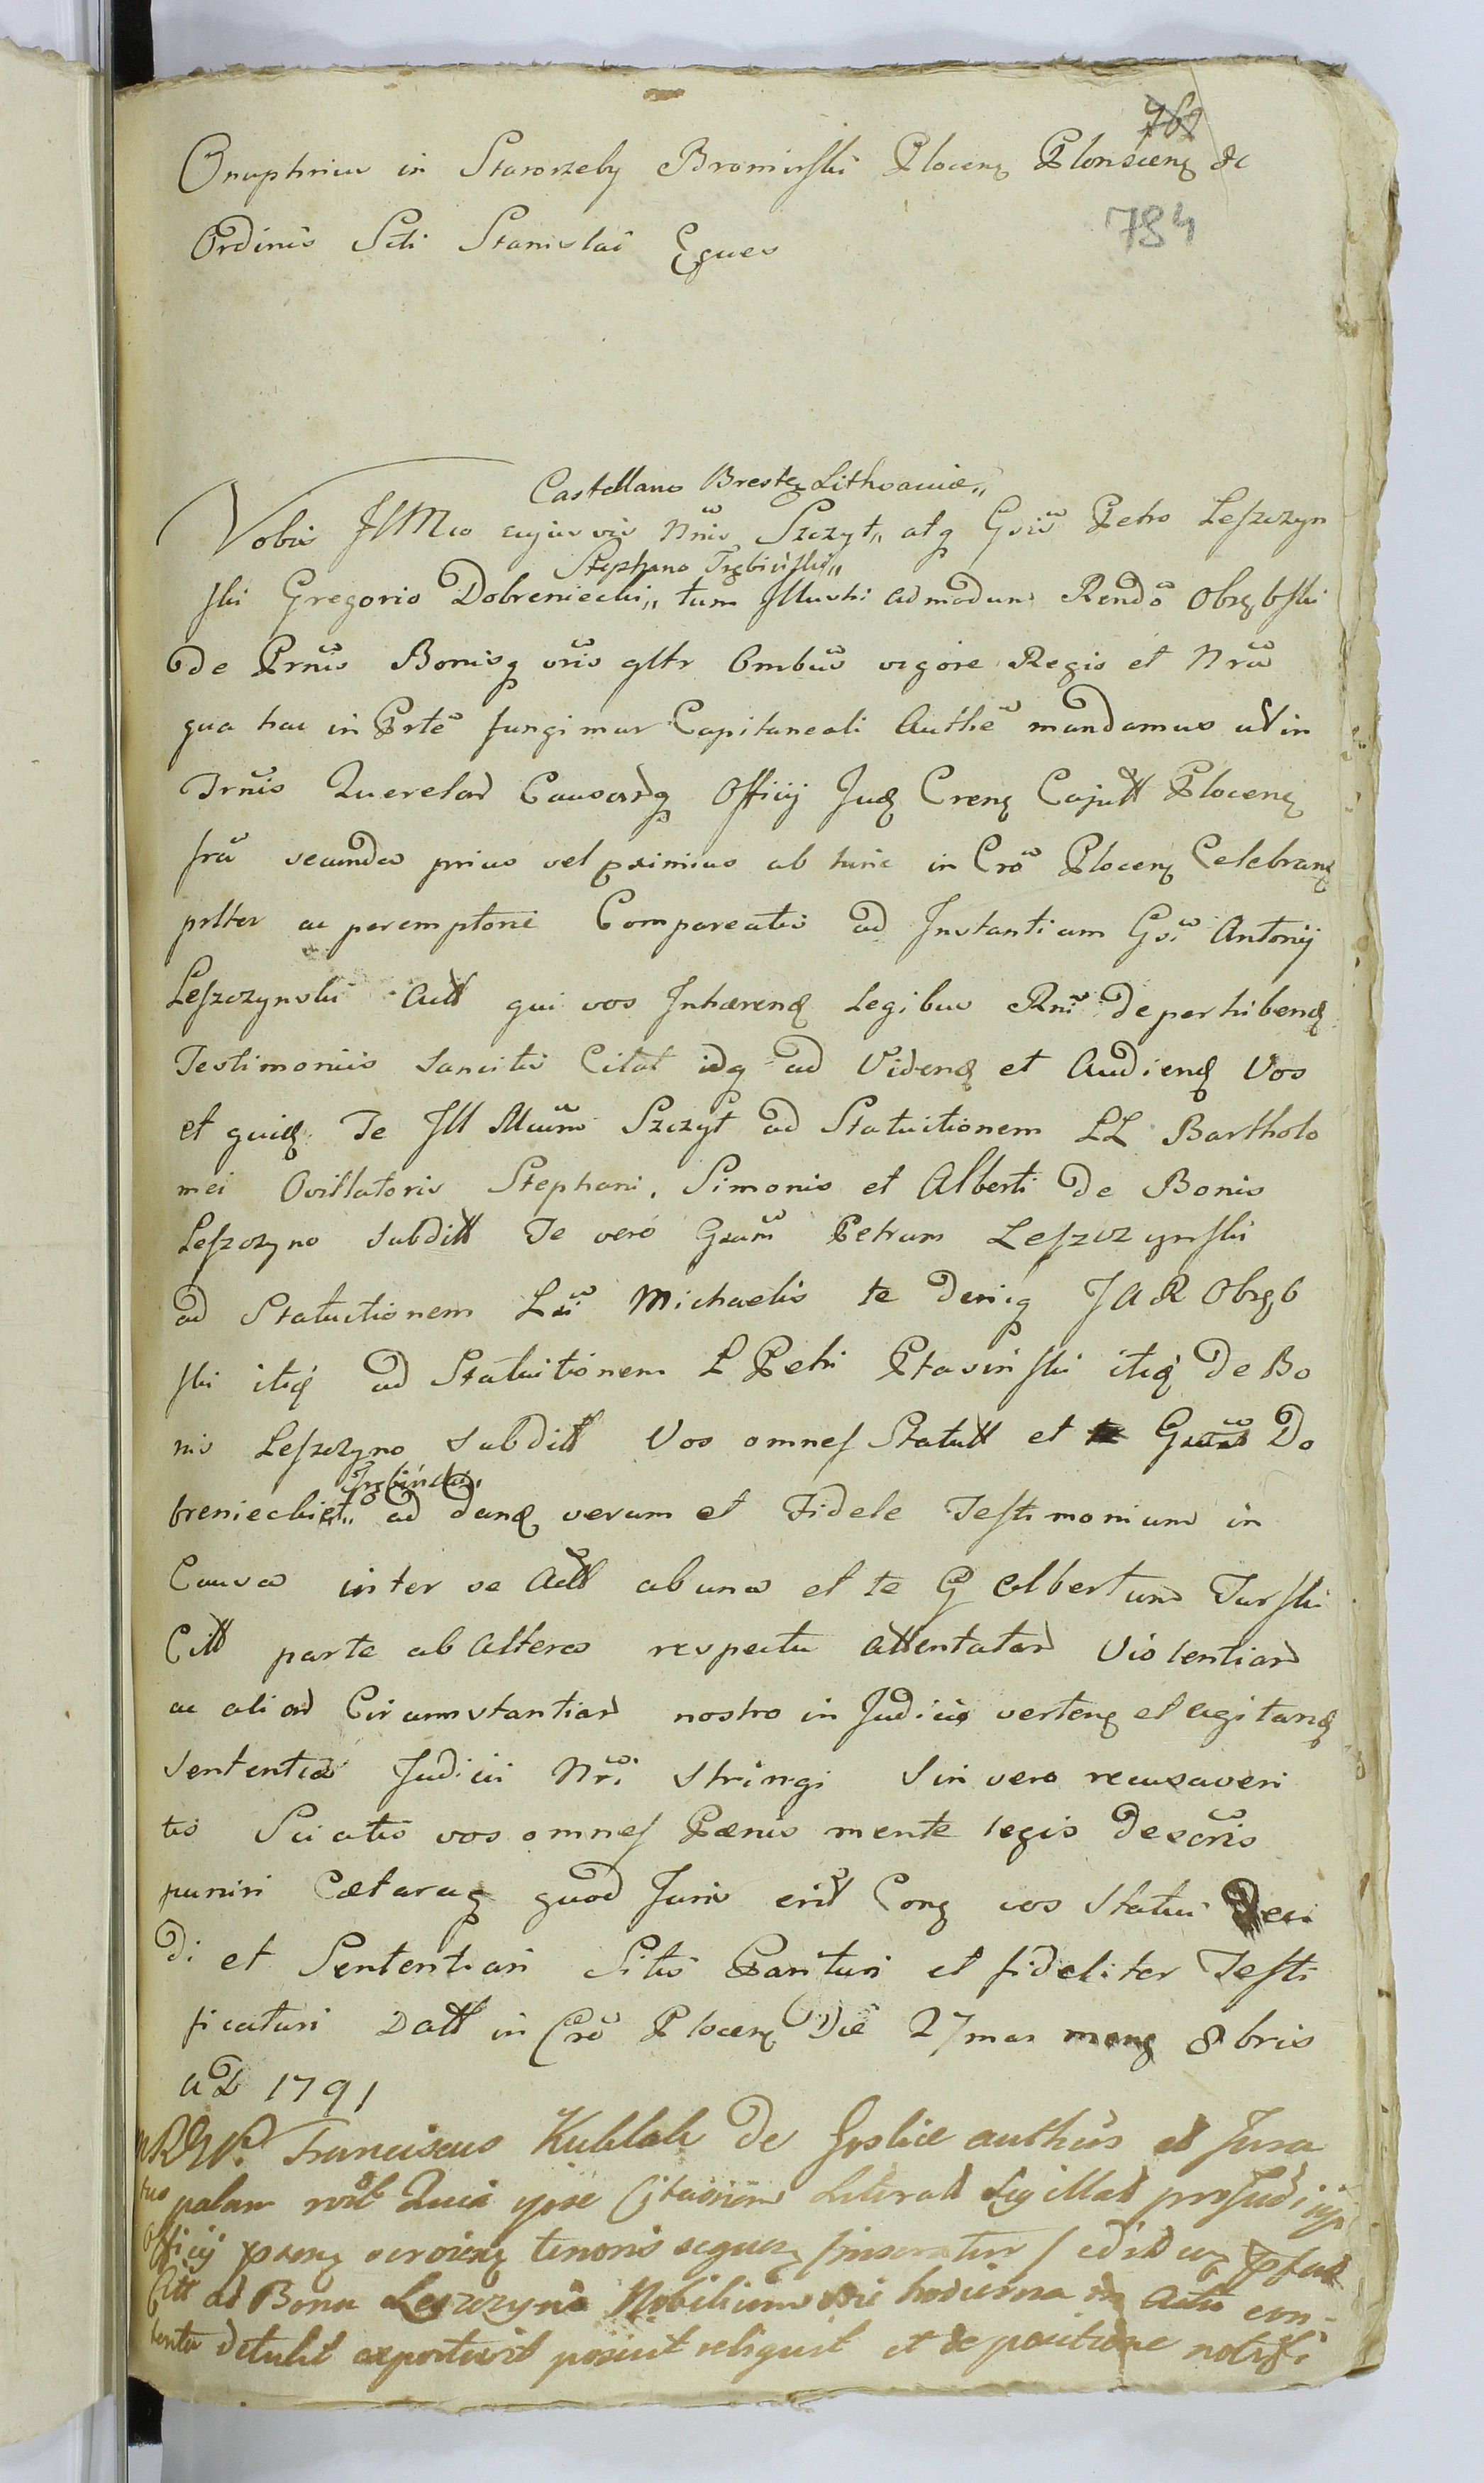 767
Onuphrius in Starorzeby Bromirski Plocenꝫ Plonscenꝫ &c
784
Ordinis Scti Stanislai Eques
Castellano Brestꝫ Lithvaniæ„
Vobis IllMco cujusvis Nnis Szczyt„ atq Gsis Petro Leszczyn
Stephano Trębiński„
ski Gregorio Dobreniecki„ tum Illustri admodum Rendo Obrębski
de Prnis Bonisq vris gltr Ombus vigore Regio et Nra
qua hac in Prte fungimur Capitaneali Authe mandamus ut in
Trnis Querelar Causarq Officij Jud Crenꝫ Capitt Plocenꝫ
fra secunda prius vel pximius ab hinc in Cro Plocenꝫ Celebranꝫ
prlter ac peremptorie Compareatis ad Instantiam Gsi Antonij
Leszczynski Actt qui vos Inhærend Legibus Rni de perhibend
Testimoniis sancitis Citat idq ad Videnꝫ et Audienꝫ Vos
et quid Te Ill Mcum Szczyt ad Statuitionem LL Bartholo
mei Ovillatoris Stephani, Simonis et Alberti de Bonis
Leszczyno Subditt Te vero Gsum Petrum Leszczynski
ad Statuitionem Lsi Michaelis te deniq JAR Obręb
ski itid ad Statuitionem L Petri Ptasiński itid de Bo
nis Leszczyno Subditt Vos omnes Statutt et Gsum Do
Trębiński„
breniecki et„ ad dand verum et Fidele Testimonium in
Causa inter se Actt ab una et te G Albertum Turski
Citt parte ab altera respectu attentatar Violentiar
ac aliar Circumstantiar nostro in Judicio vertenꝫ et agitand
Sententia Judicii Nri stringi Sin vero recusaveri
tis Sciatis vos omnes Pænis mente legis descris
puniri Cætaraq quod Juris erit Conq vos Statui Deci
di et Sententiari Sitis Parituri et fideliter Testi
ficaturi Datt in Cro Plocenꝫ Die 27ma menꝫ 8bris
AD 1791
Franciscus Kublak de Goslice authus et Jura
tus palam Quia ipse Literas Sigillat pro Judiciis
Officij tenoris sequenꝫ
Citt ad Bona Leszczyno Nobilium die hodierna in Actu con-
tenta detulit exportavit posuit reliquit et de positione